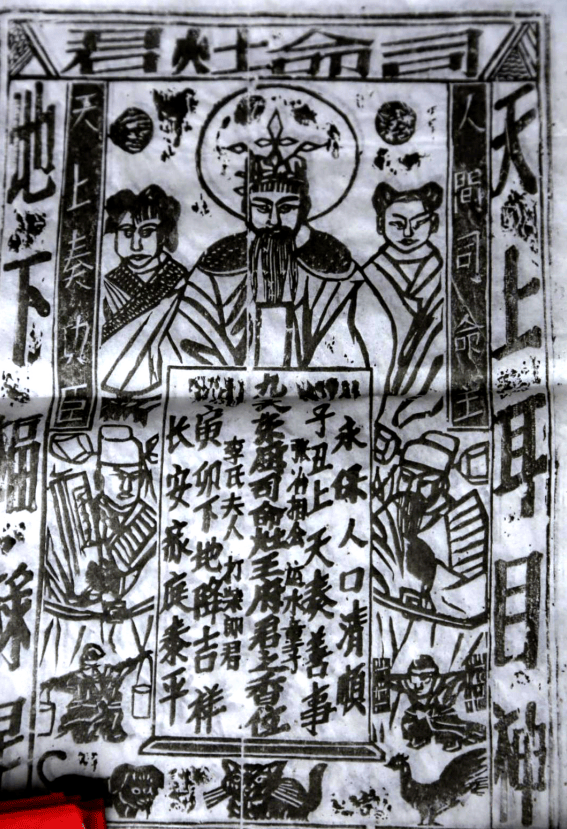 司命灶君
天上耳目神
人間司命主
永保人口清順
子丑上天奏善事
水童子
九天东厨司命灶王府君之香位
李氏夫人 打柴郎君
寅卯下地降吉祥
长安家庭泰平
天上奏功臣
地下福祿